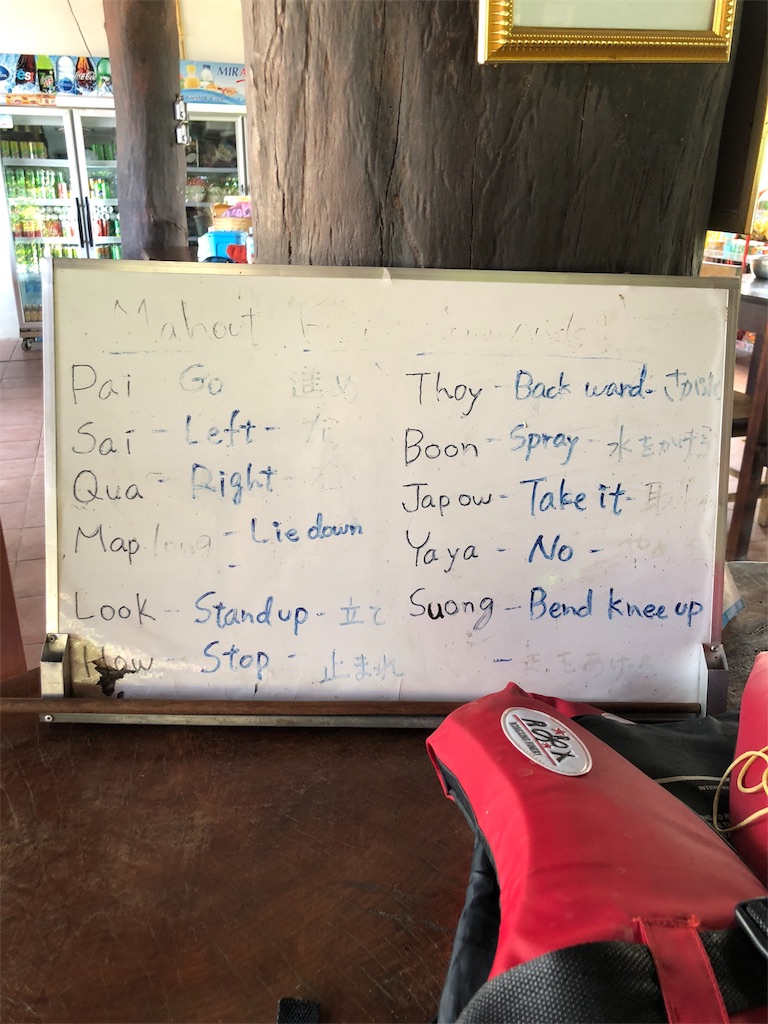 Mahout
Pai Go 進め
Sai - Left - 左
Qua - Right - 右
Map long - Lie down
-
Look - Stand up - 立て
How - Stop - 止まれ
Thoy - Back ward -
Boon - Spray - 水をかけろ
Japow - Take it -
Yaya - No -
Suong - Bend knee up
-
MIRA
Coca-Cola